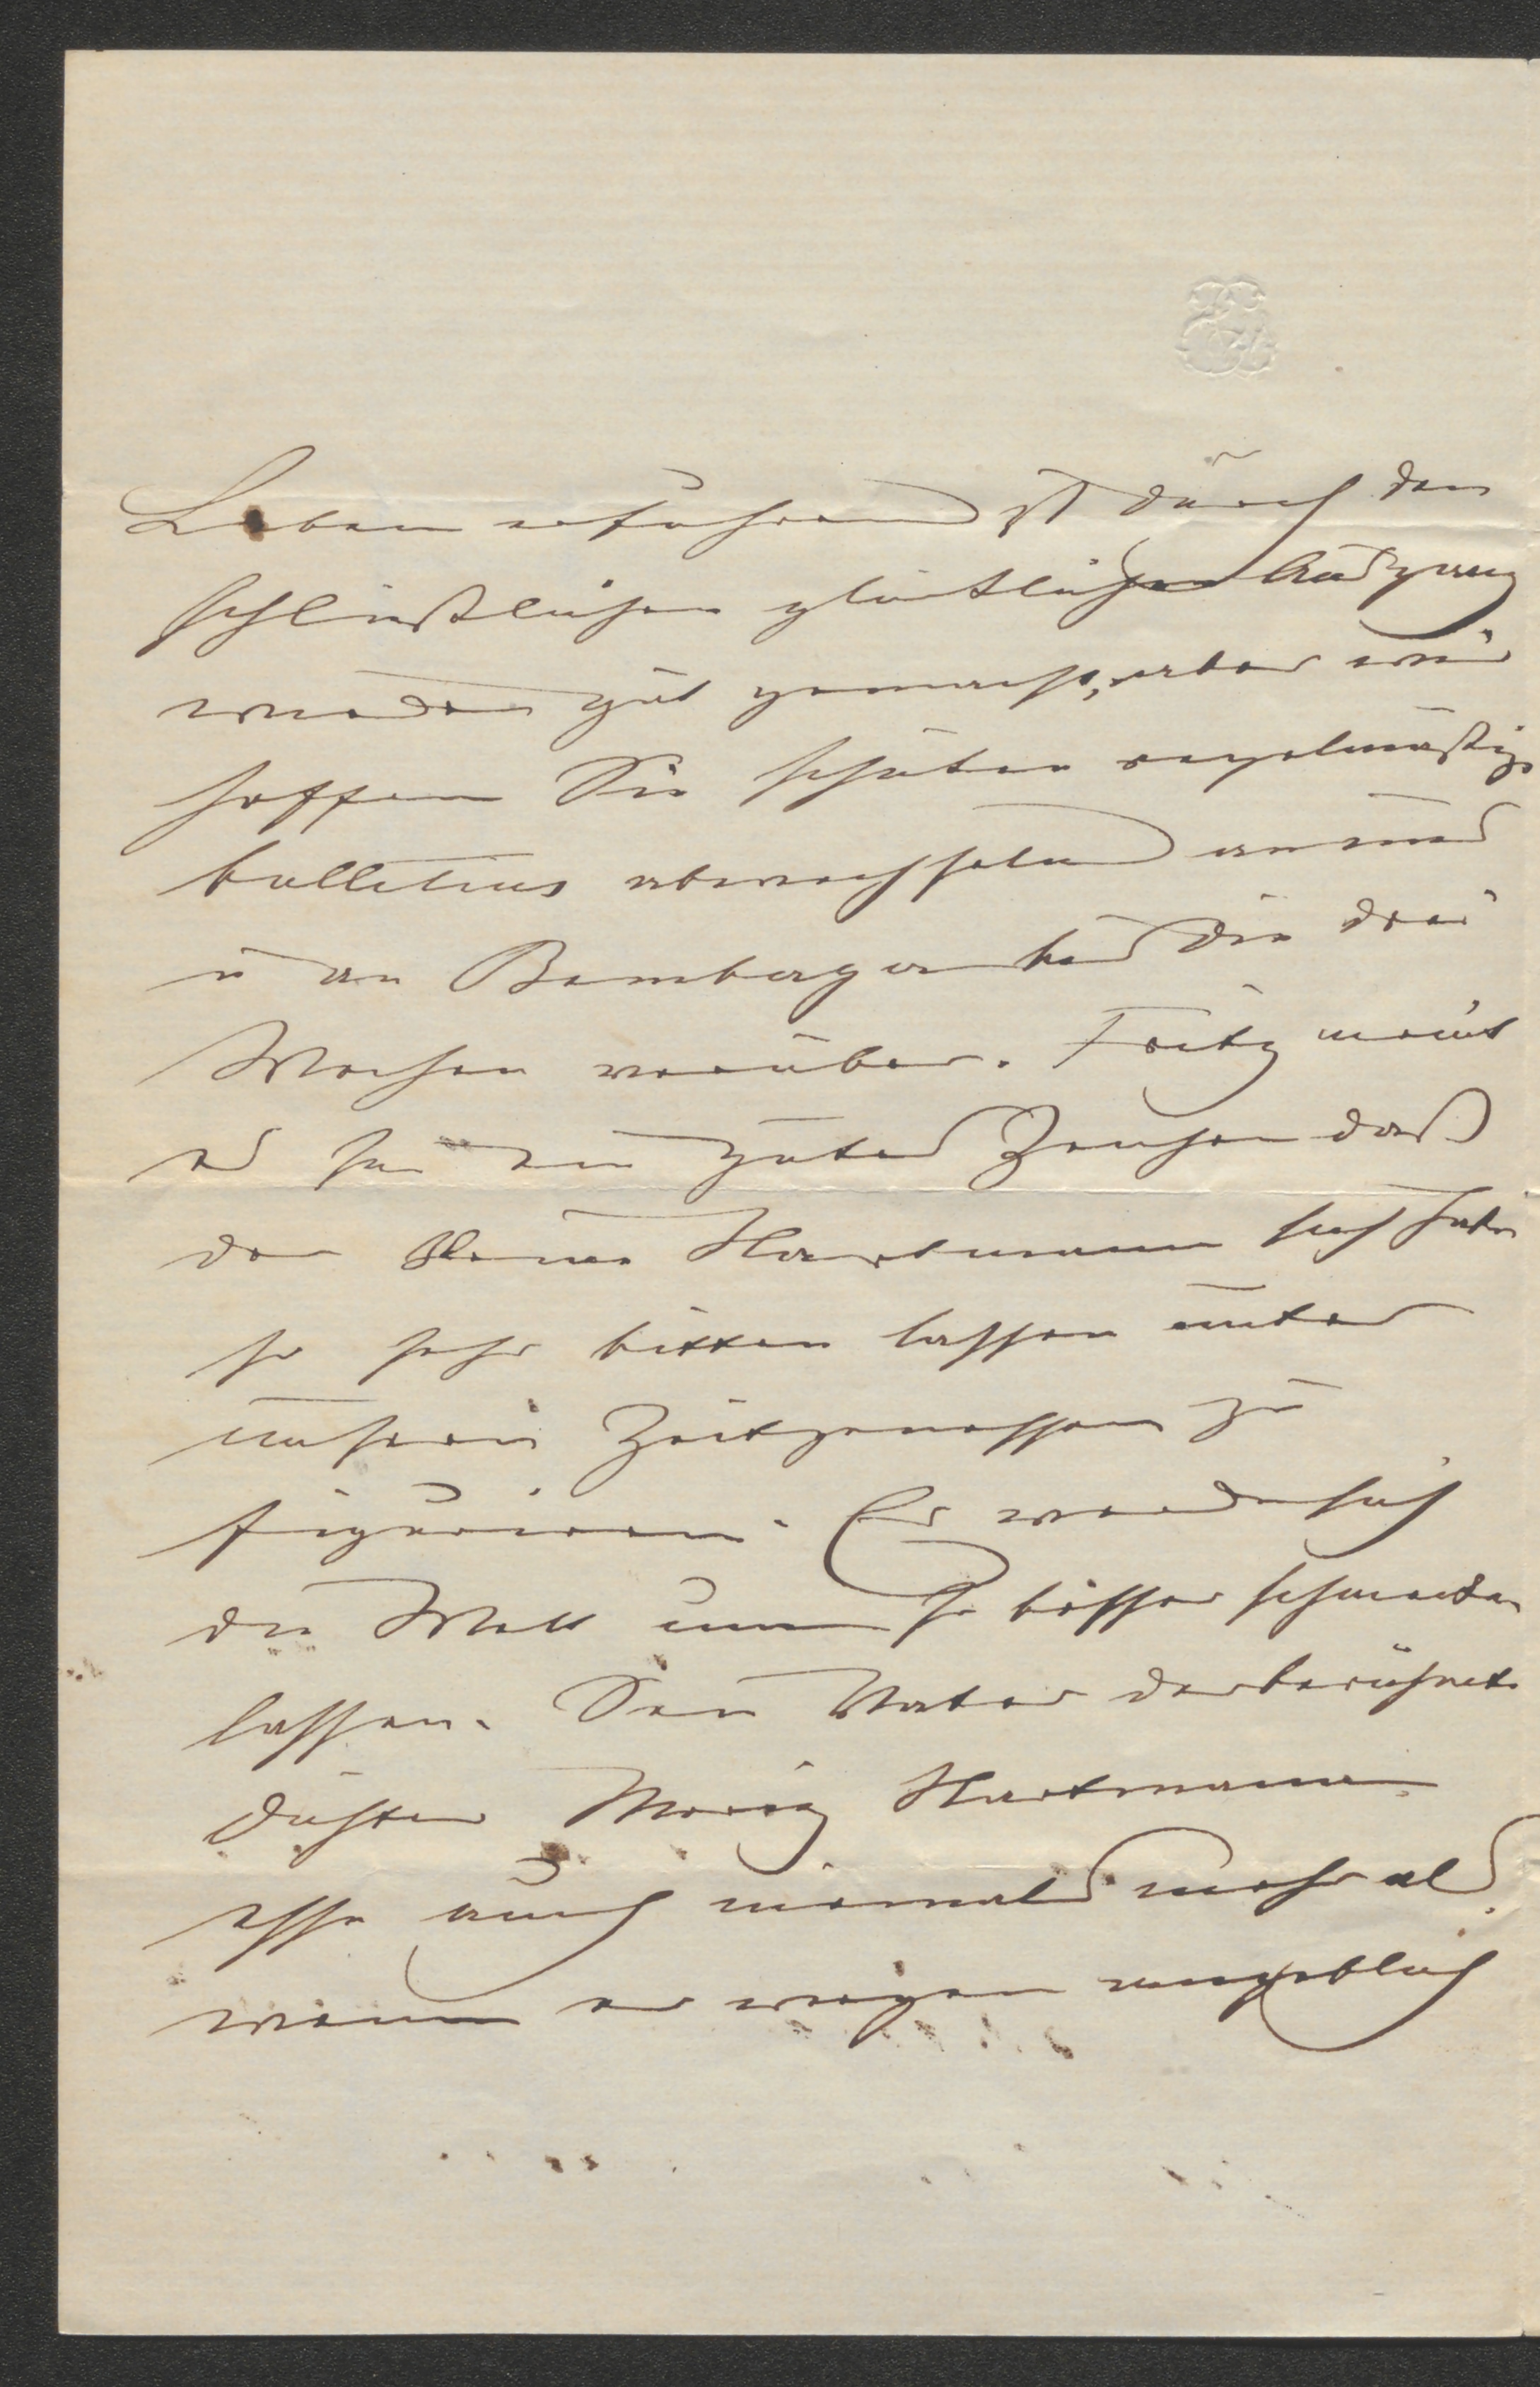 Leben erfahren ist durch den
schließlichen glücklichen Ausgang
wieder gut gemacht, aber wir
hoffen Sie schicken regelmäßige
bulletins abwechselnd an uns
u an Bamberger bis die drei
Wochen vorüber. Fritz meint
es sei ein gutes Zeichen daß
der kleine Hartmann sich habe
so sehr bitten lassen unter
unsern Zeitgenossen zu
figuriren. Er werde sich
die Welt um so besser schmecken
lassen. Sein Vater der berühmte
Dichter Moriz Hartmann
esse auch niemals mehr als
wenn er wegen angeblich